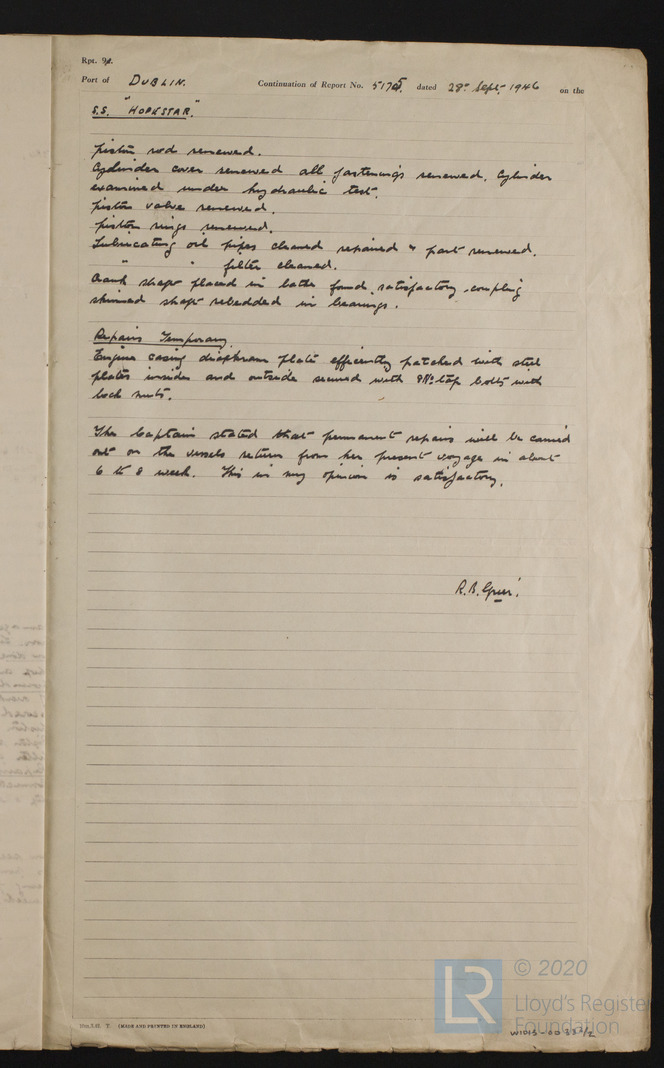 Rpt. 9d.
Port of DUBLIN. Continuation of Report No. 5175. dated 28th Sept. 1946 on the
S.S. "HOPESTAR."
piston rod renewed.
Cylinder cover renewed all fastenings renewed. Cylinder
examined under hydraulic test.
piston valve renewed.
piston rings renewed.
Lubricating oil pipes cleaned repaired & part renewed.
" " filter cleaned.
Crank shaft placed in lathe found satisfactory coupling
skimmed shaft rebedded in bearings.
Repairs Temporary.
Engine casing diaphram plate efficiently patched with steel
plates inside and outside secured with tap bolts with
lock nuts.
The Captain stated that permanent repairs will be carried
out on the vessels return from her present voyage in about
6 to 8 week. This in my opinion is satisfactory.
R.B.
(MADE AND PRINTED IN ENGLAND)
LR © 2020
Lloyd's Register
Foundation